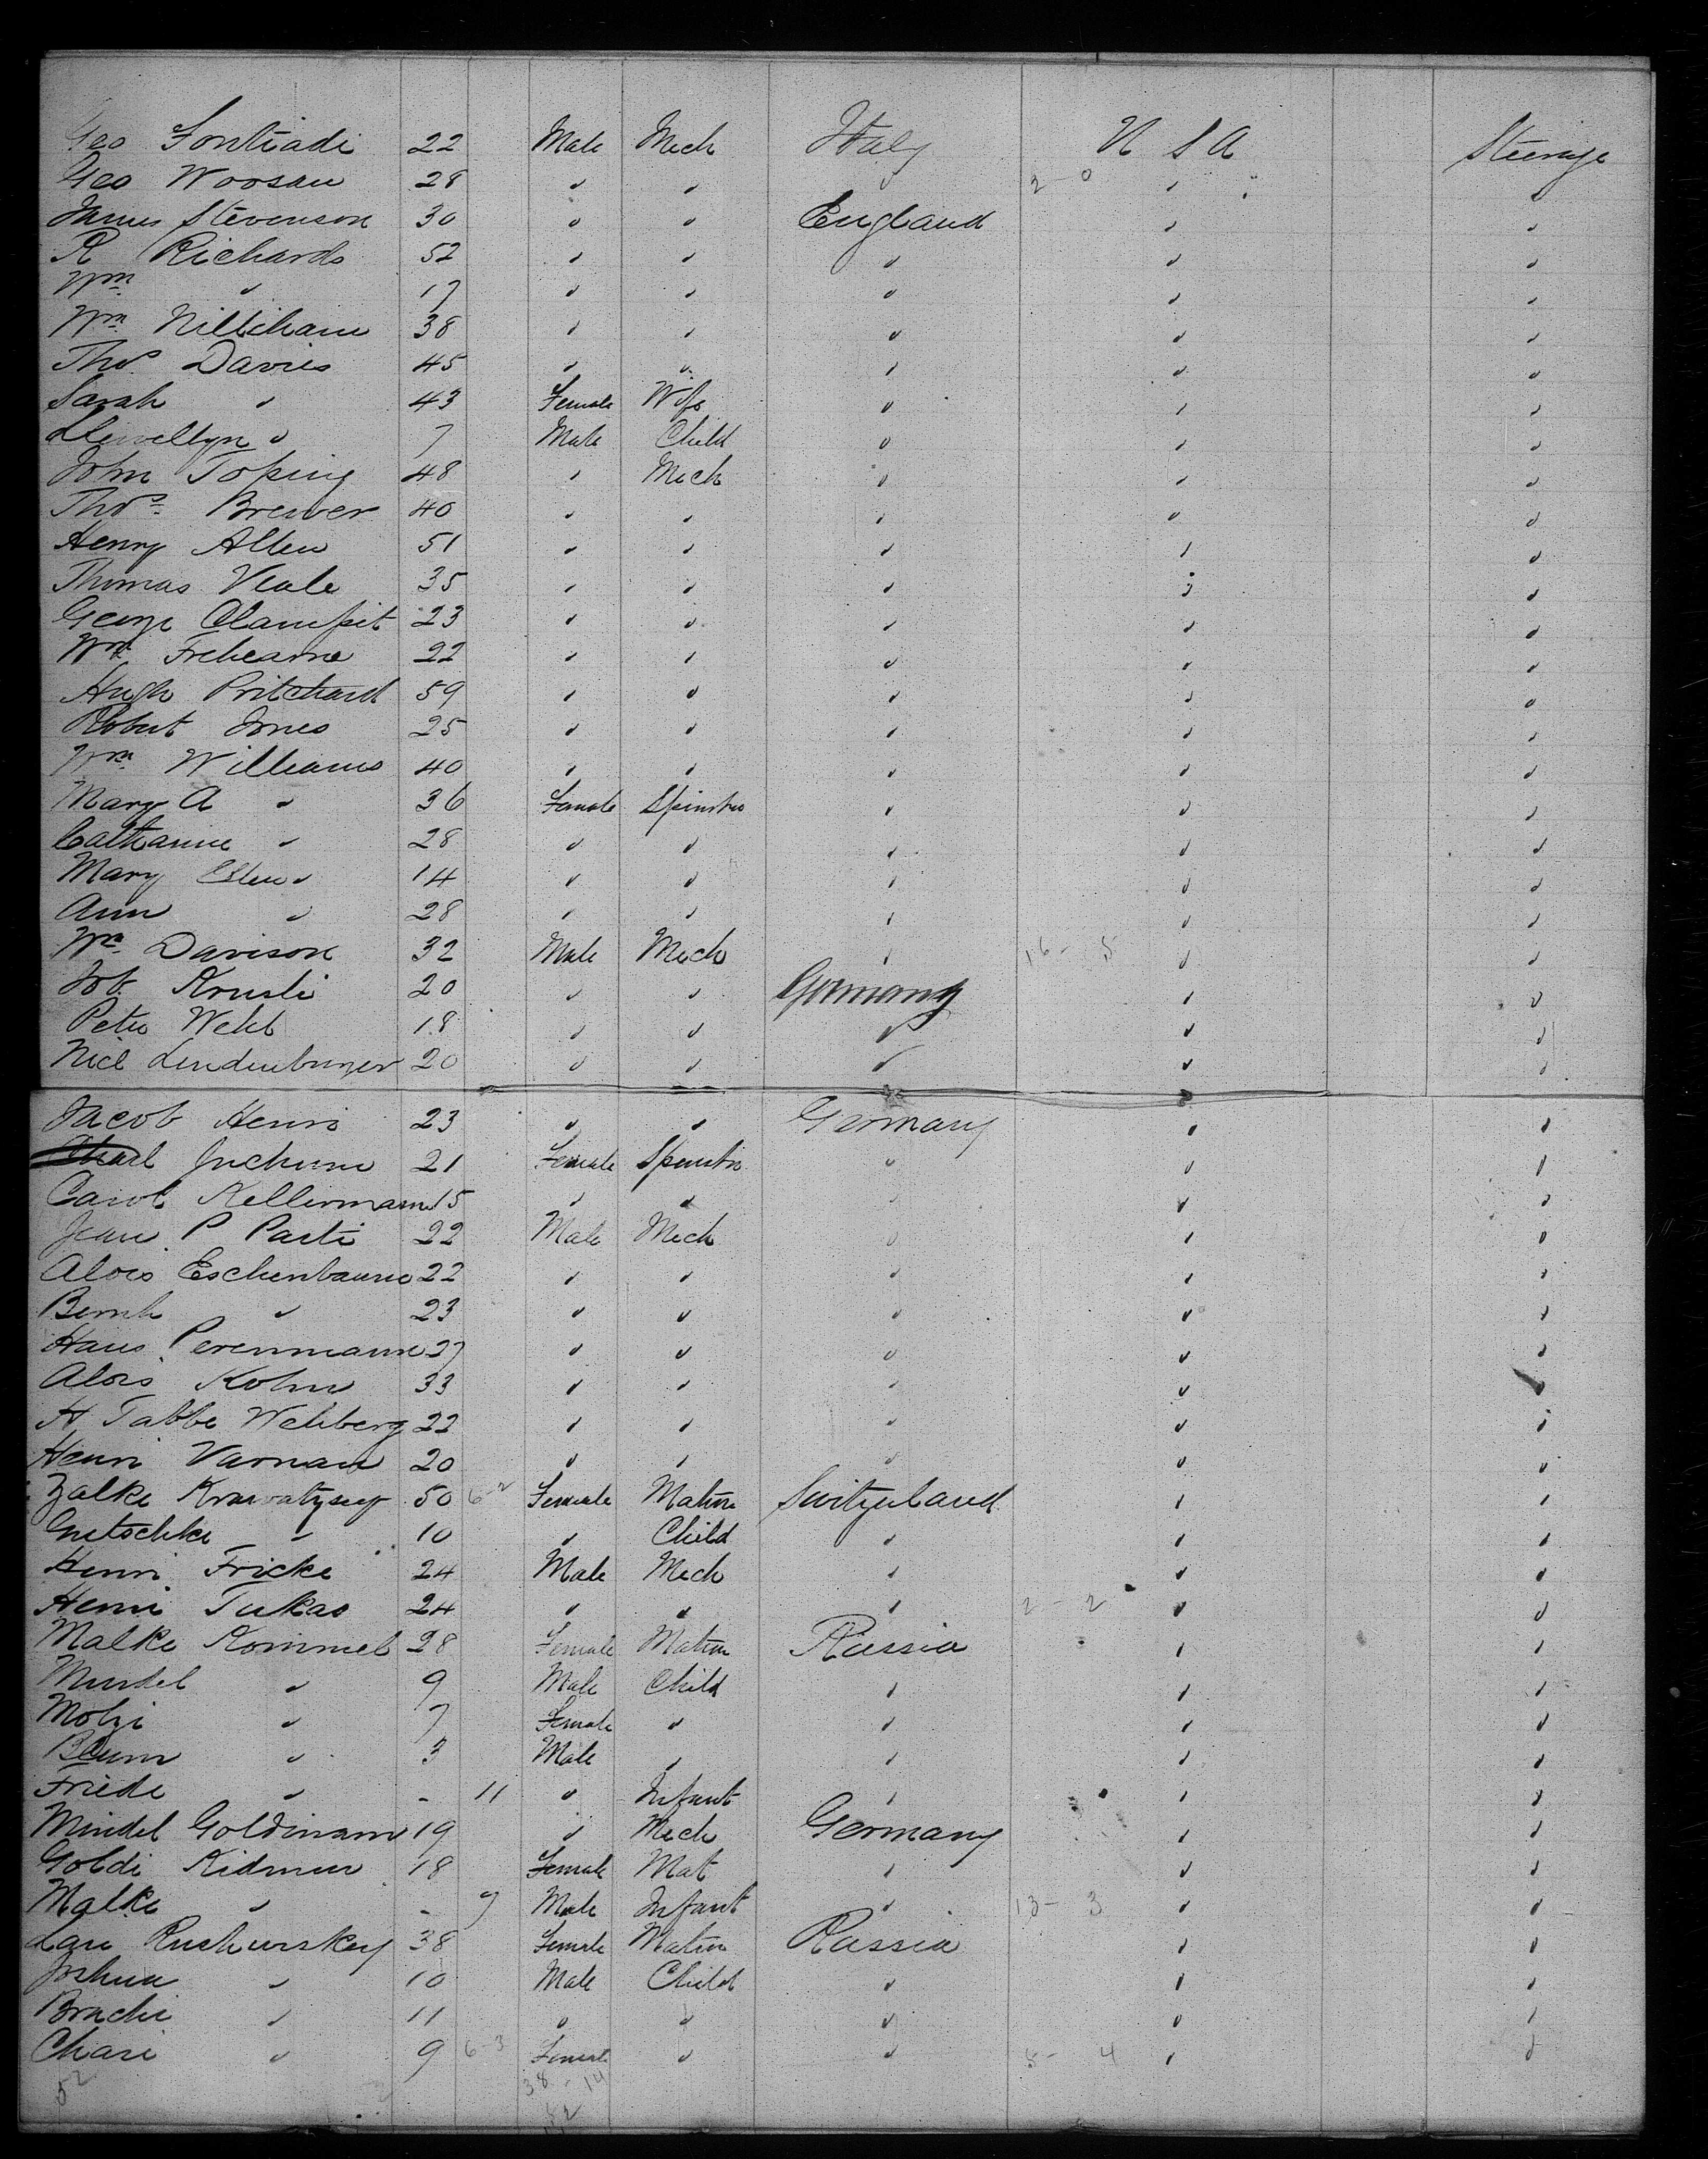 Geo Fontiadi 22 Male Mech Italy U S A Steerage
Geo Woosau 28 " " " 2 - 0 " "
James Stevenson 30 " " England " "
R Richards 52 " " " " "
Wm " 17 " " " " "
Wm 38 " " " " "
Thos Davies 45 " " " " "
Sarah " 43 Female Wife " " "
Llewellyn " 7 Male Child " " "
John Toping 48 " Mech " " "
Thos Brewer 40 " " " " "
Henry Allen 51 " " " " "
Thomas Veale 35 " " " " "
George Clampit 23 " " " " "
Wm Trehearne 22 " " " " "
Hugh Pritchard 59 " " " " "
Robert Jones 25 " " " " "
Wm Williams 40 " " " " "
Mary A " 36 Female Spinster " " "
Catharine " 28 " " " " "
Mary Ellen " 14 " " " " "
Ann " 28 " " " " "
Wm Davison 32 Male Mech " 16 - 5 " "
Job Krusli 20 " " Germany " "
Peter Webb 18 " " " " "
Nicl Lindenburger 20 " " " " "
Jacob Henri 23 " " Germany " "
Juchum 21 Female Spinster " " "
Carol Kellermann 15 " " " " "
Jean P Parti 22 Male Mech " " "
Alois Eschenbaum 22 " " " " "
Bernh " 23 " " " " "
Hans Perenmann 27 " " " " "
Alois Kohn 33 " " " " "
H Tabbe Wehberg 22 " " " " "
Henri Varnau 20 " " " " "
Zalke 50 6-2 Female Matron Switzerland " "
Gnetschke " 10 " Child " " "
Henri Fricke 24 Male Mech " " "
Henri Tukas 24 " " " 2 - 2 " "
Malke Kommel 28 Female Matron Russia " "
Mindel " 9 Male Child " " "
Molzi " 7 Female " " " "
Blum " 3 Male " " " "
Friede " - 11 " Infant " " "
Mindel Goldmann 19 " Mech Germany " "
Goldi Kidmun 18 Female Mat " " "
Malke " - 9 Male Infant " 13 - 3 " "
Lare Rushurskey 38 Female Matron Russia " "
Joshua " 10 Male Child " " "
Brachi " 11 " " " " "
Chari " 9 6-3 Female " " 5 - 4 " "
52 38 - 14
52